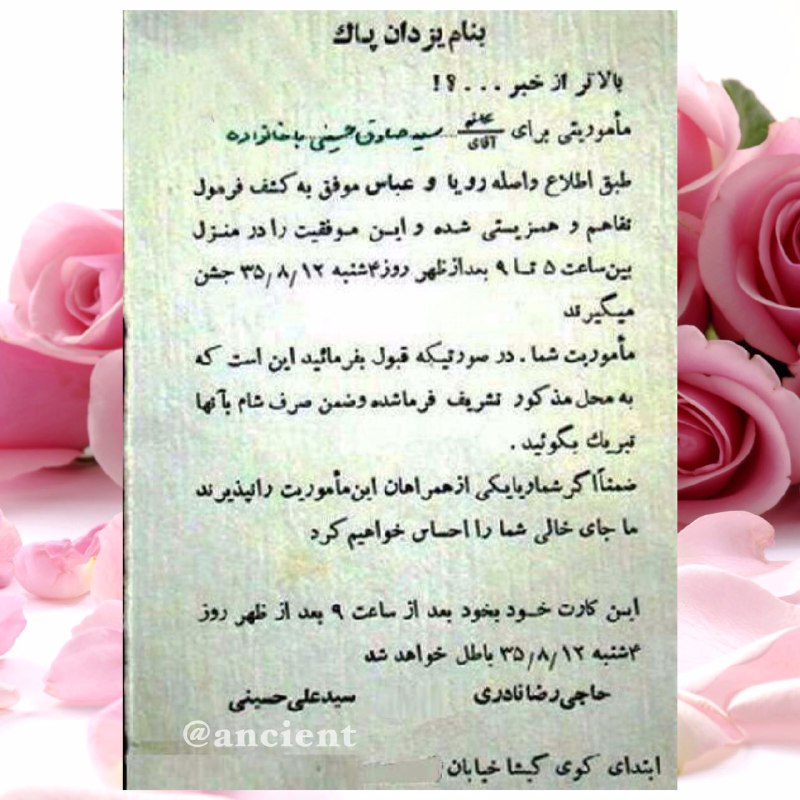 بنام یزدان پاك
بالاتر از خبر . . . ؟!
مأموریتی برای خانم آقای سید صادق حسینی باخانواده
طبق اطلاع واصله رویا و عباس موفق به کشف فرمول
تفاهم و همزیستی شده و این موفقیت را در منزل
بین ساعت ۵ تا ۹ بعدازظهر روز ۴شنبه ۳۵/۸/۱۲ جشن
میگیرند
مأموریت شما . در صورتیکه قبول بفرمائید این است که
به محل مذکور تشریف فرماشده وضمن صرف شام بآنها
تبریك بگوئید .
ضمناً اگر شما و یا یکی از همراهان این مأموریت را نپذیرند
ما جای خالی شما را احساس خواهیم کرد
این کارت خود بخود بعد از ساعت ۹ بعد از ظهر روز
۴شنبه ۳۵/۸/۱۲ باطل خواهد شد
حاجی رضا نادری سید علی حسینی
@ancient
ابتدای کوی گیشا خیابان